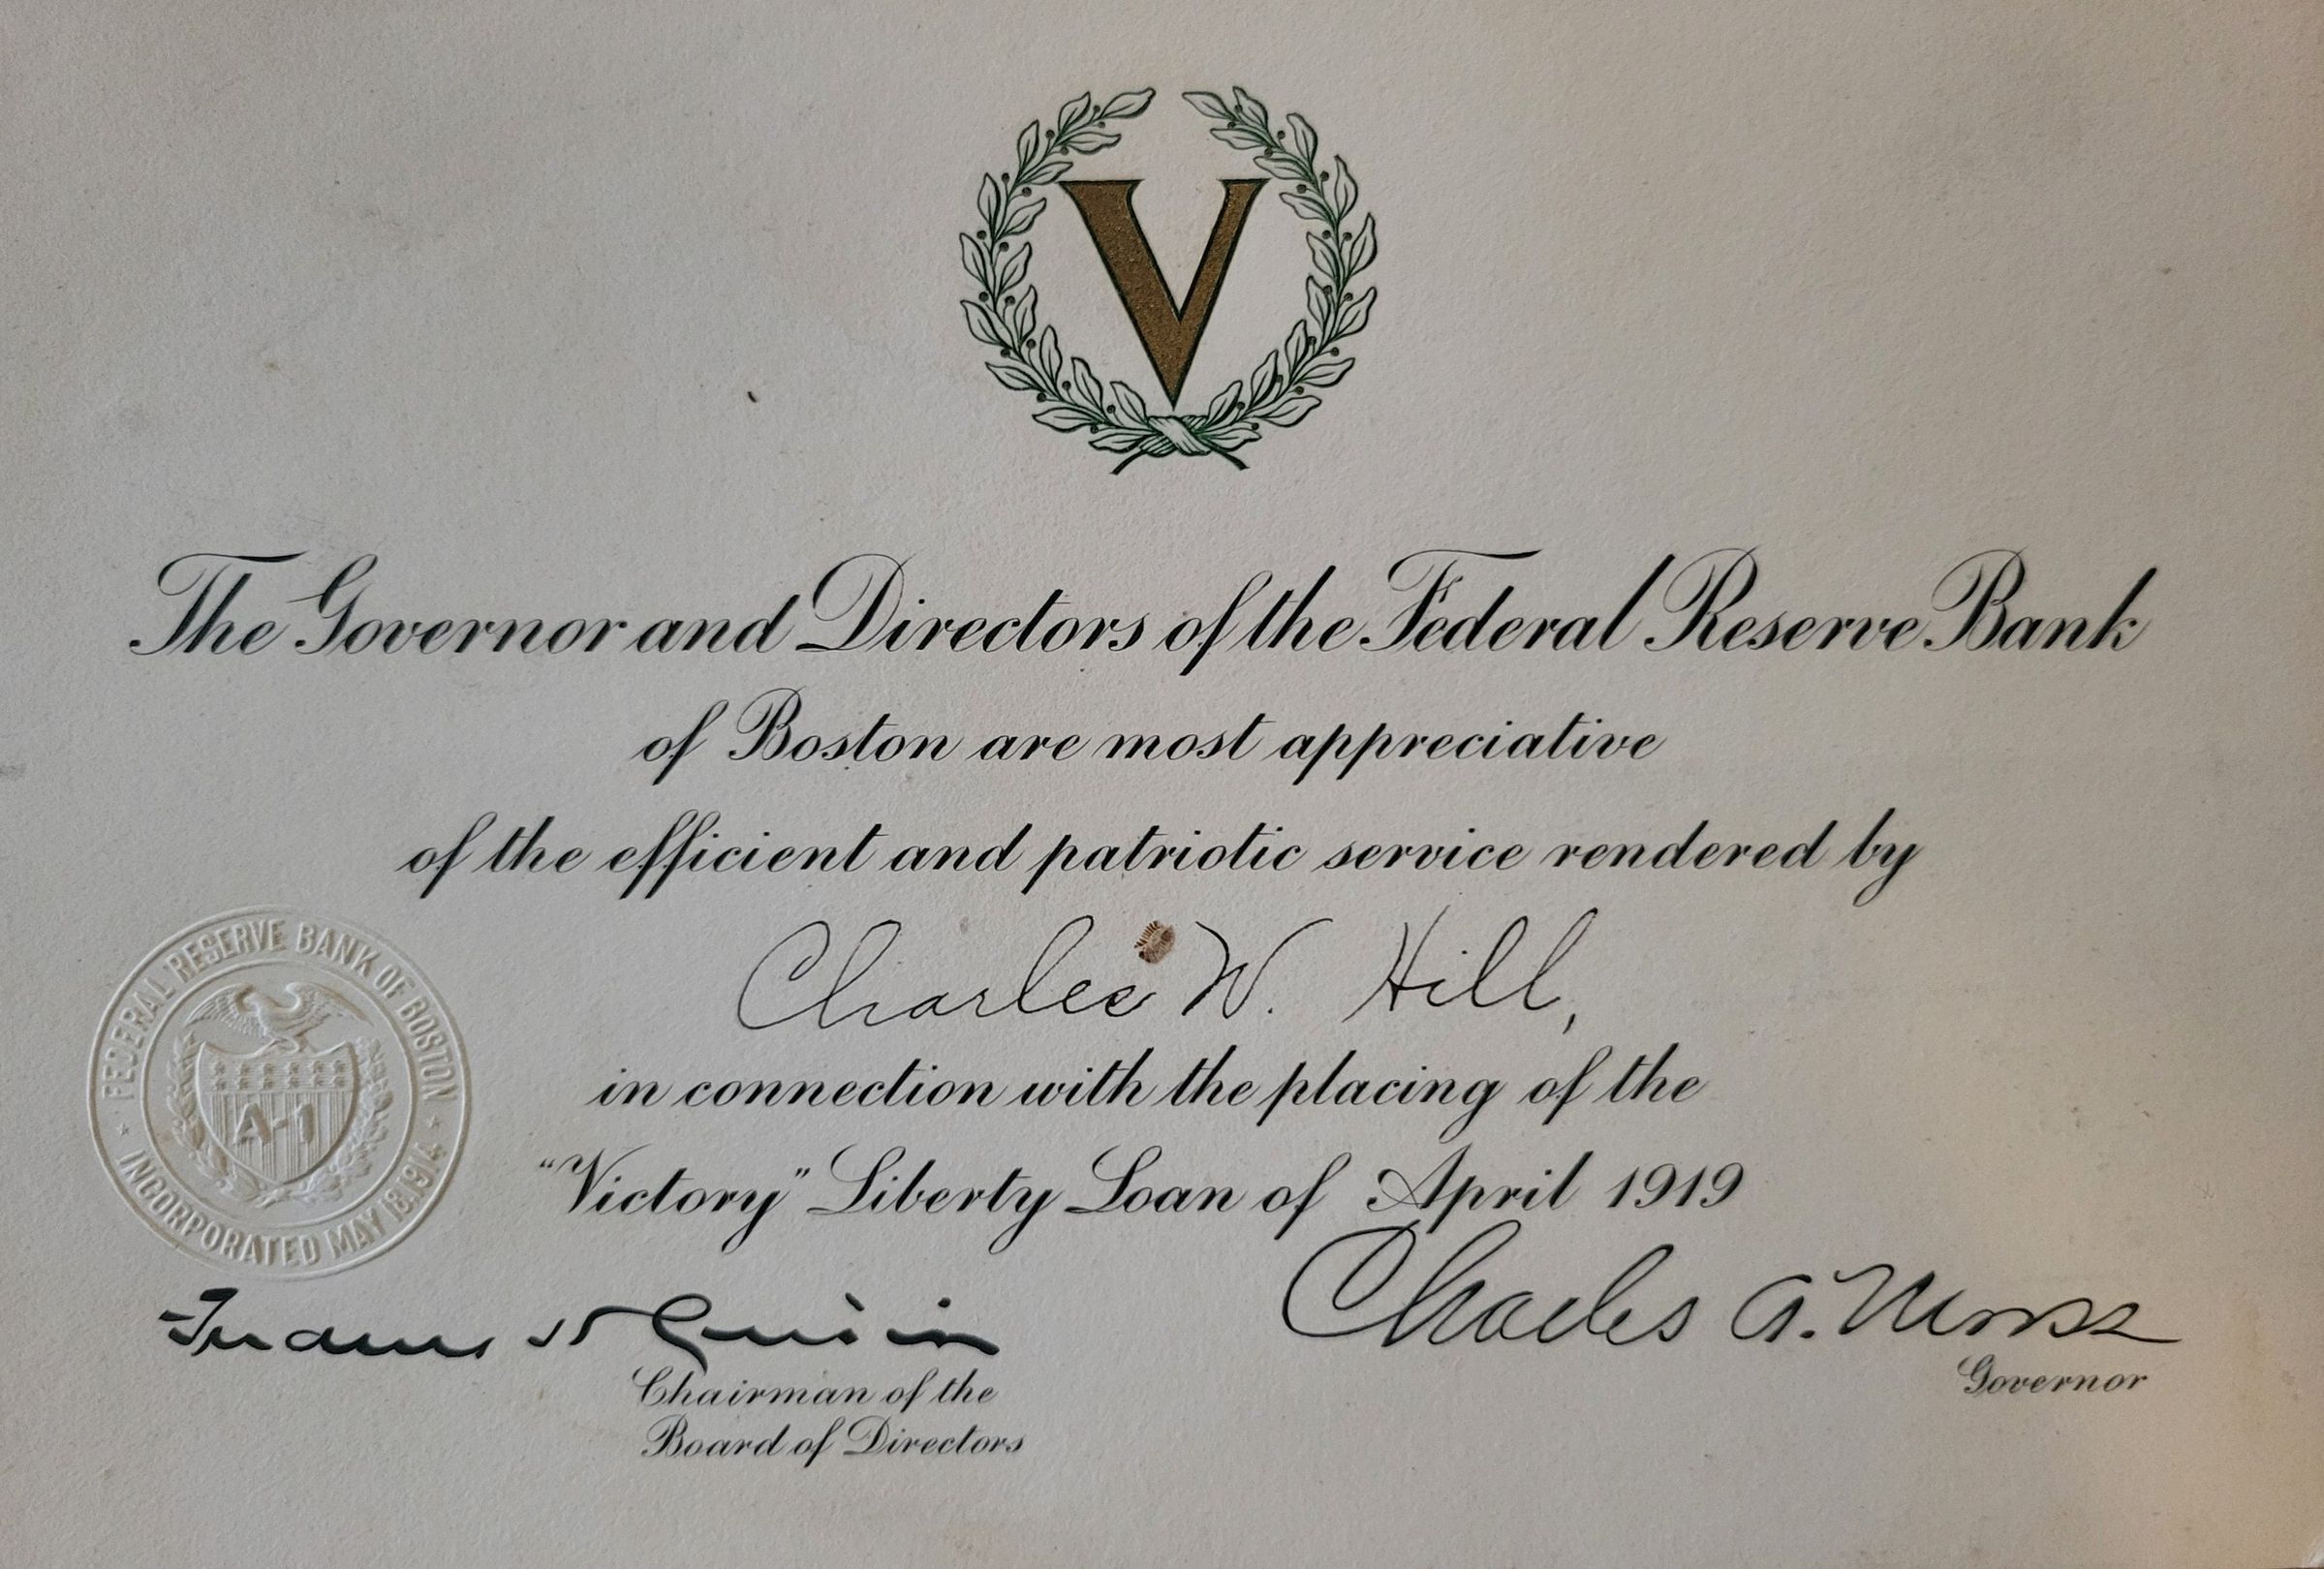 V
The Governor and Directors of the Federal Reserve Bank
of Boston are most appreciative
of the efficient and patriotic service rendered by
Charles W. Hill,
in connection with the placing of the
"Victory" Liberty Loan of April 1919
FEDERAL RESERVE BANK OF BOSTON
INCORPORATED MAY 18, 1914
A-1
Chairman of the
Board of Directors
Charles A. Morss
Governor